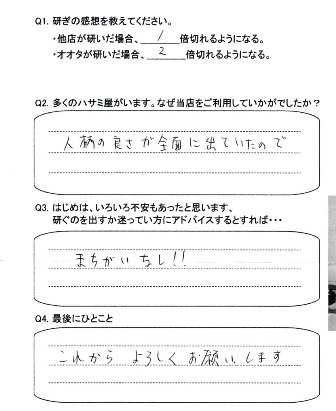 Q1. 研ぎの感想を教えてください。
・他店が研いだ場合、 1 倍切れるようになる。
・オオタが研いだ場合、 2 倍切れるようになる。
Q2. 多くのハサミ屋がいます。なぜ当店をご利用していかがでしたか？
人柄の良さが全面に出ていたので
Q3. はじめは、いろいろ不安もあったと思います、
研ぐのを出すか迷ってい方にアドバイスするとすれば・・・
まちがいなし!!
Q4. 最後にひとこと
これから よろしく お願いします